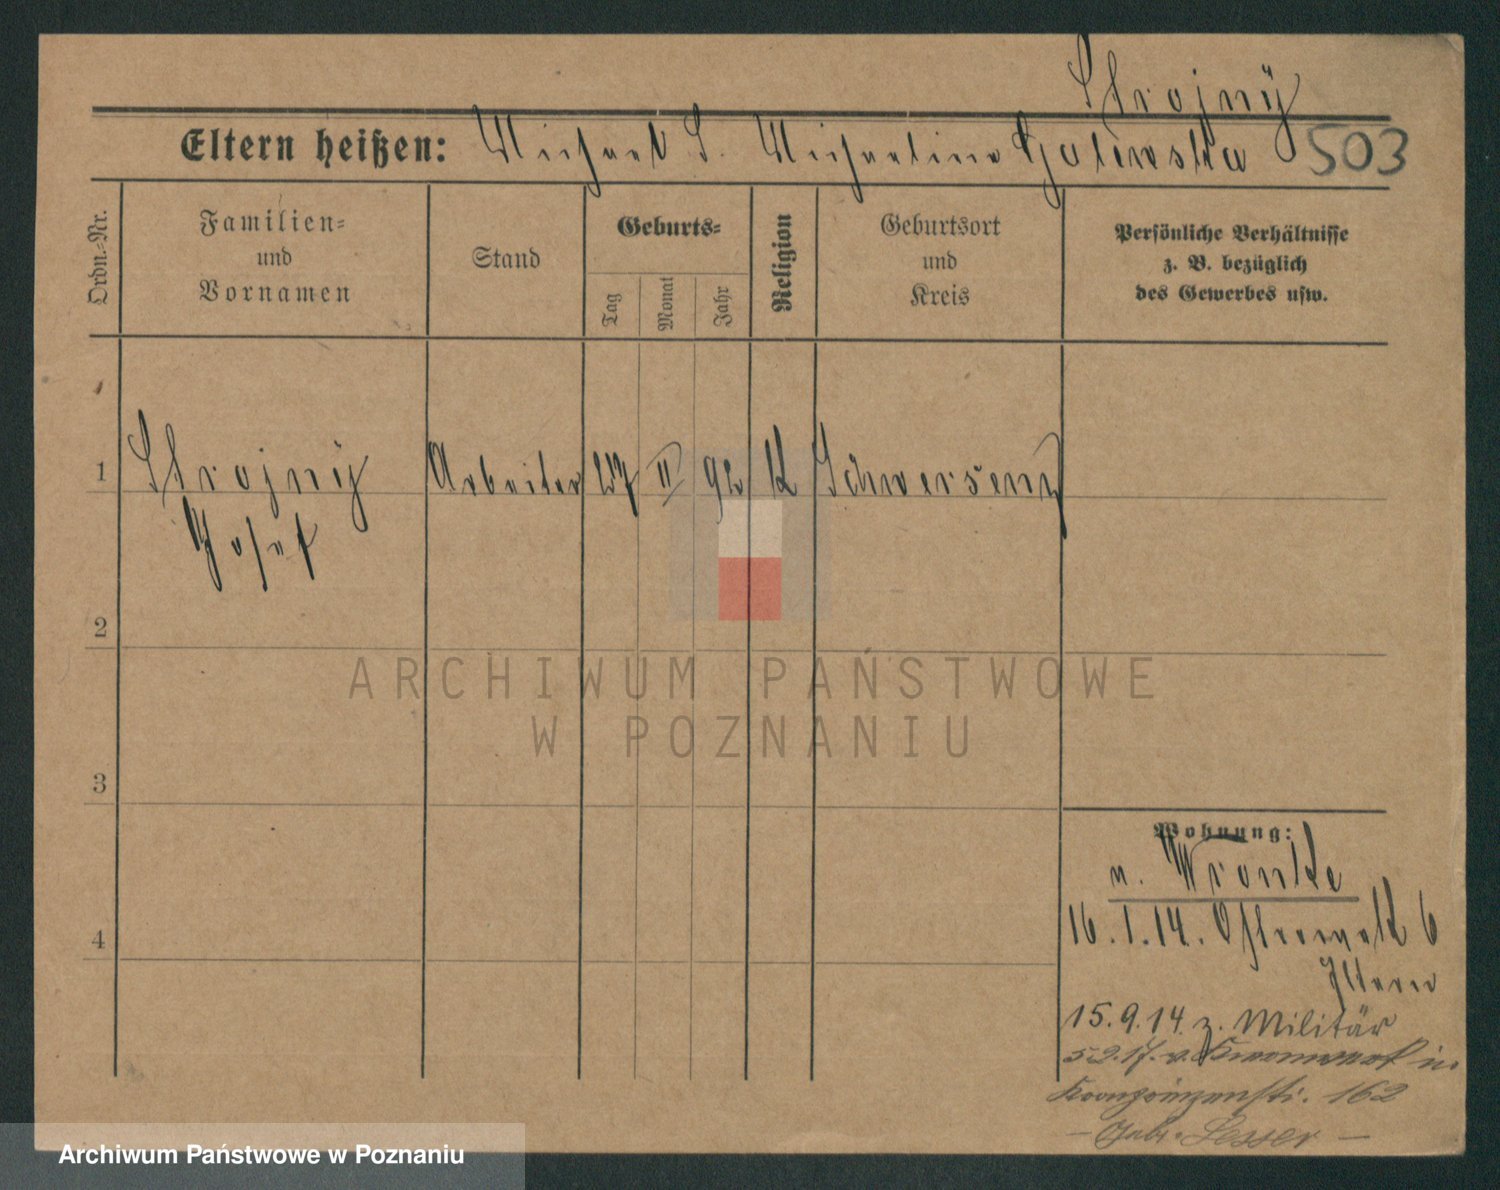 Strojny
Eltern heißen: Michael S. Michaelina Golewska 503
Ordn.-Nr.
Familien- und Vornamen
Stand
Geburts-
Tag
Monat
Jahr
Religion
Geburtsort und Kreis
Persönliche Verhältnisse
z. B. bezüglich
des Gewerbes usw.
1 Strojny Arbeiter 27 II 92 K Schwersenz
Josef
2
3
4
ARCHIWUM PAŃSTWOWE
W POZNANIU
Wohnung:
n. Wronke
16.1.14. 6
Eltern
15.9.14 z. Militär
5 2.17. v. in
Kronprinzenstr. 162
– Lesser –
Archiwum Państwowe w Poznaniu